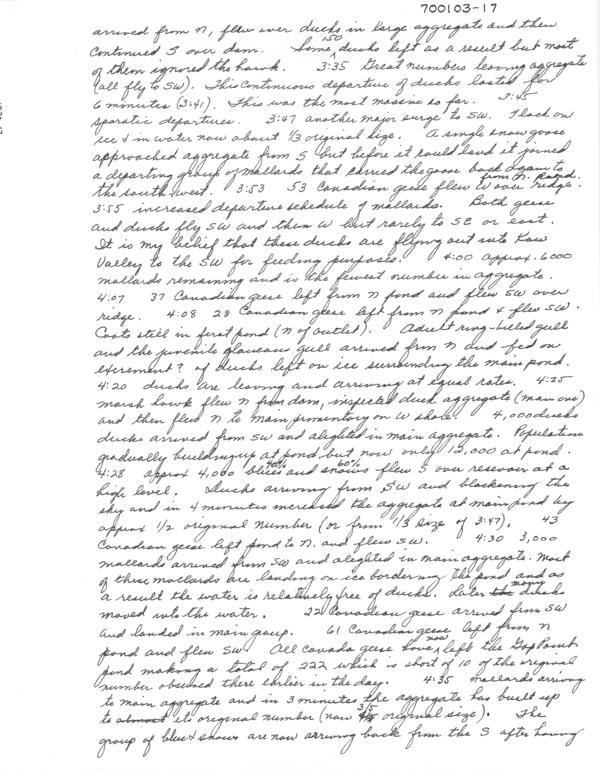 700103-17
arrived from N, flew over ducks in large aggregate and then
continued S over dam. Some 150 ducks left as a result but most
of them ignored the hawk. 3:35 Great numbers leaving aggregate
(all fly to SW). This continuous departure of ducks lasted for
6 minutes (3:41). This was the most massive so far. 3:45
sporatic departures. 3:47 another major surge to SW. Flock on
ice & in water now about 1/3 original size. A single snow goose
approached aggregate from S but before it could land it joined
a departing group of mallards that carried the goose back again to
the south west. 3:53 53 Canadian geese flew from N. Pond. W over ridge.
3:55 increased departure schedule of mallards. Both geese
and ducks fly SW and then W but rarely to SE or east.
It is my belief that these ducks are flying out into Kaw
Valley to the SW for feeding purposes. 4:00 approx. 6000
mallards remaining and is the fewest number in aggregate.
4:07 37 Canadian geese left from N pond and flew SW over
ridge. 4:08 28 Canadian geese left from N pond & flew SW.
Coots still in first pond (N of outlet). Adult ring-billed gull
and the juvenile glaucous gull arrived from N and fed on
excrement? of ducks left on ice surrounding the main pond.
4:20 ducks are leaving and arriving at equal rates. 4:25
marsh hawk flew N from dam, inspected duck aggregate (main one)
and then flew N to main promintory on W shore. 4,000 ducks
ducks arrived from SW and alighted in main aggregate. Population
gradually building up at pond but now only 12,000 at pond.
4:28 approx 4,000 blues 40% and snows 60% flew S over resevoir at a
high level. Ducks arriving from SW and blackening the
sky and in 4 minutes increased the aggregate at main pond by
approx 1/2 original number (or from 1/3 size of 3:47). 43
Canadian geese left pond to N. and flew SW. 4:30 3,000
mallards arrived from SW and alighted in main aggregate. Most
of these mallards are landing on ice bordering the pond and as
a result the water is relatively free of ducks. Later the many ducks
moved into the water. 22 Canadian geese arrived from SW
and landed in main group. 61 Canadian geese left from N
pond and flew SW. All Canada geese have now left the Gap Point
pond making a total of 222 which is short of 10 of the original
number observed there earlier in the day. 4:35 mallards arriving
to main aggregate and in 3 minutes the aggregate has built up
to almost its original number (now 3/5 original size). The
group of blue & snows are now arriving back from the S after having